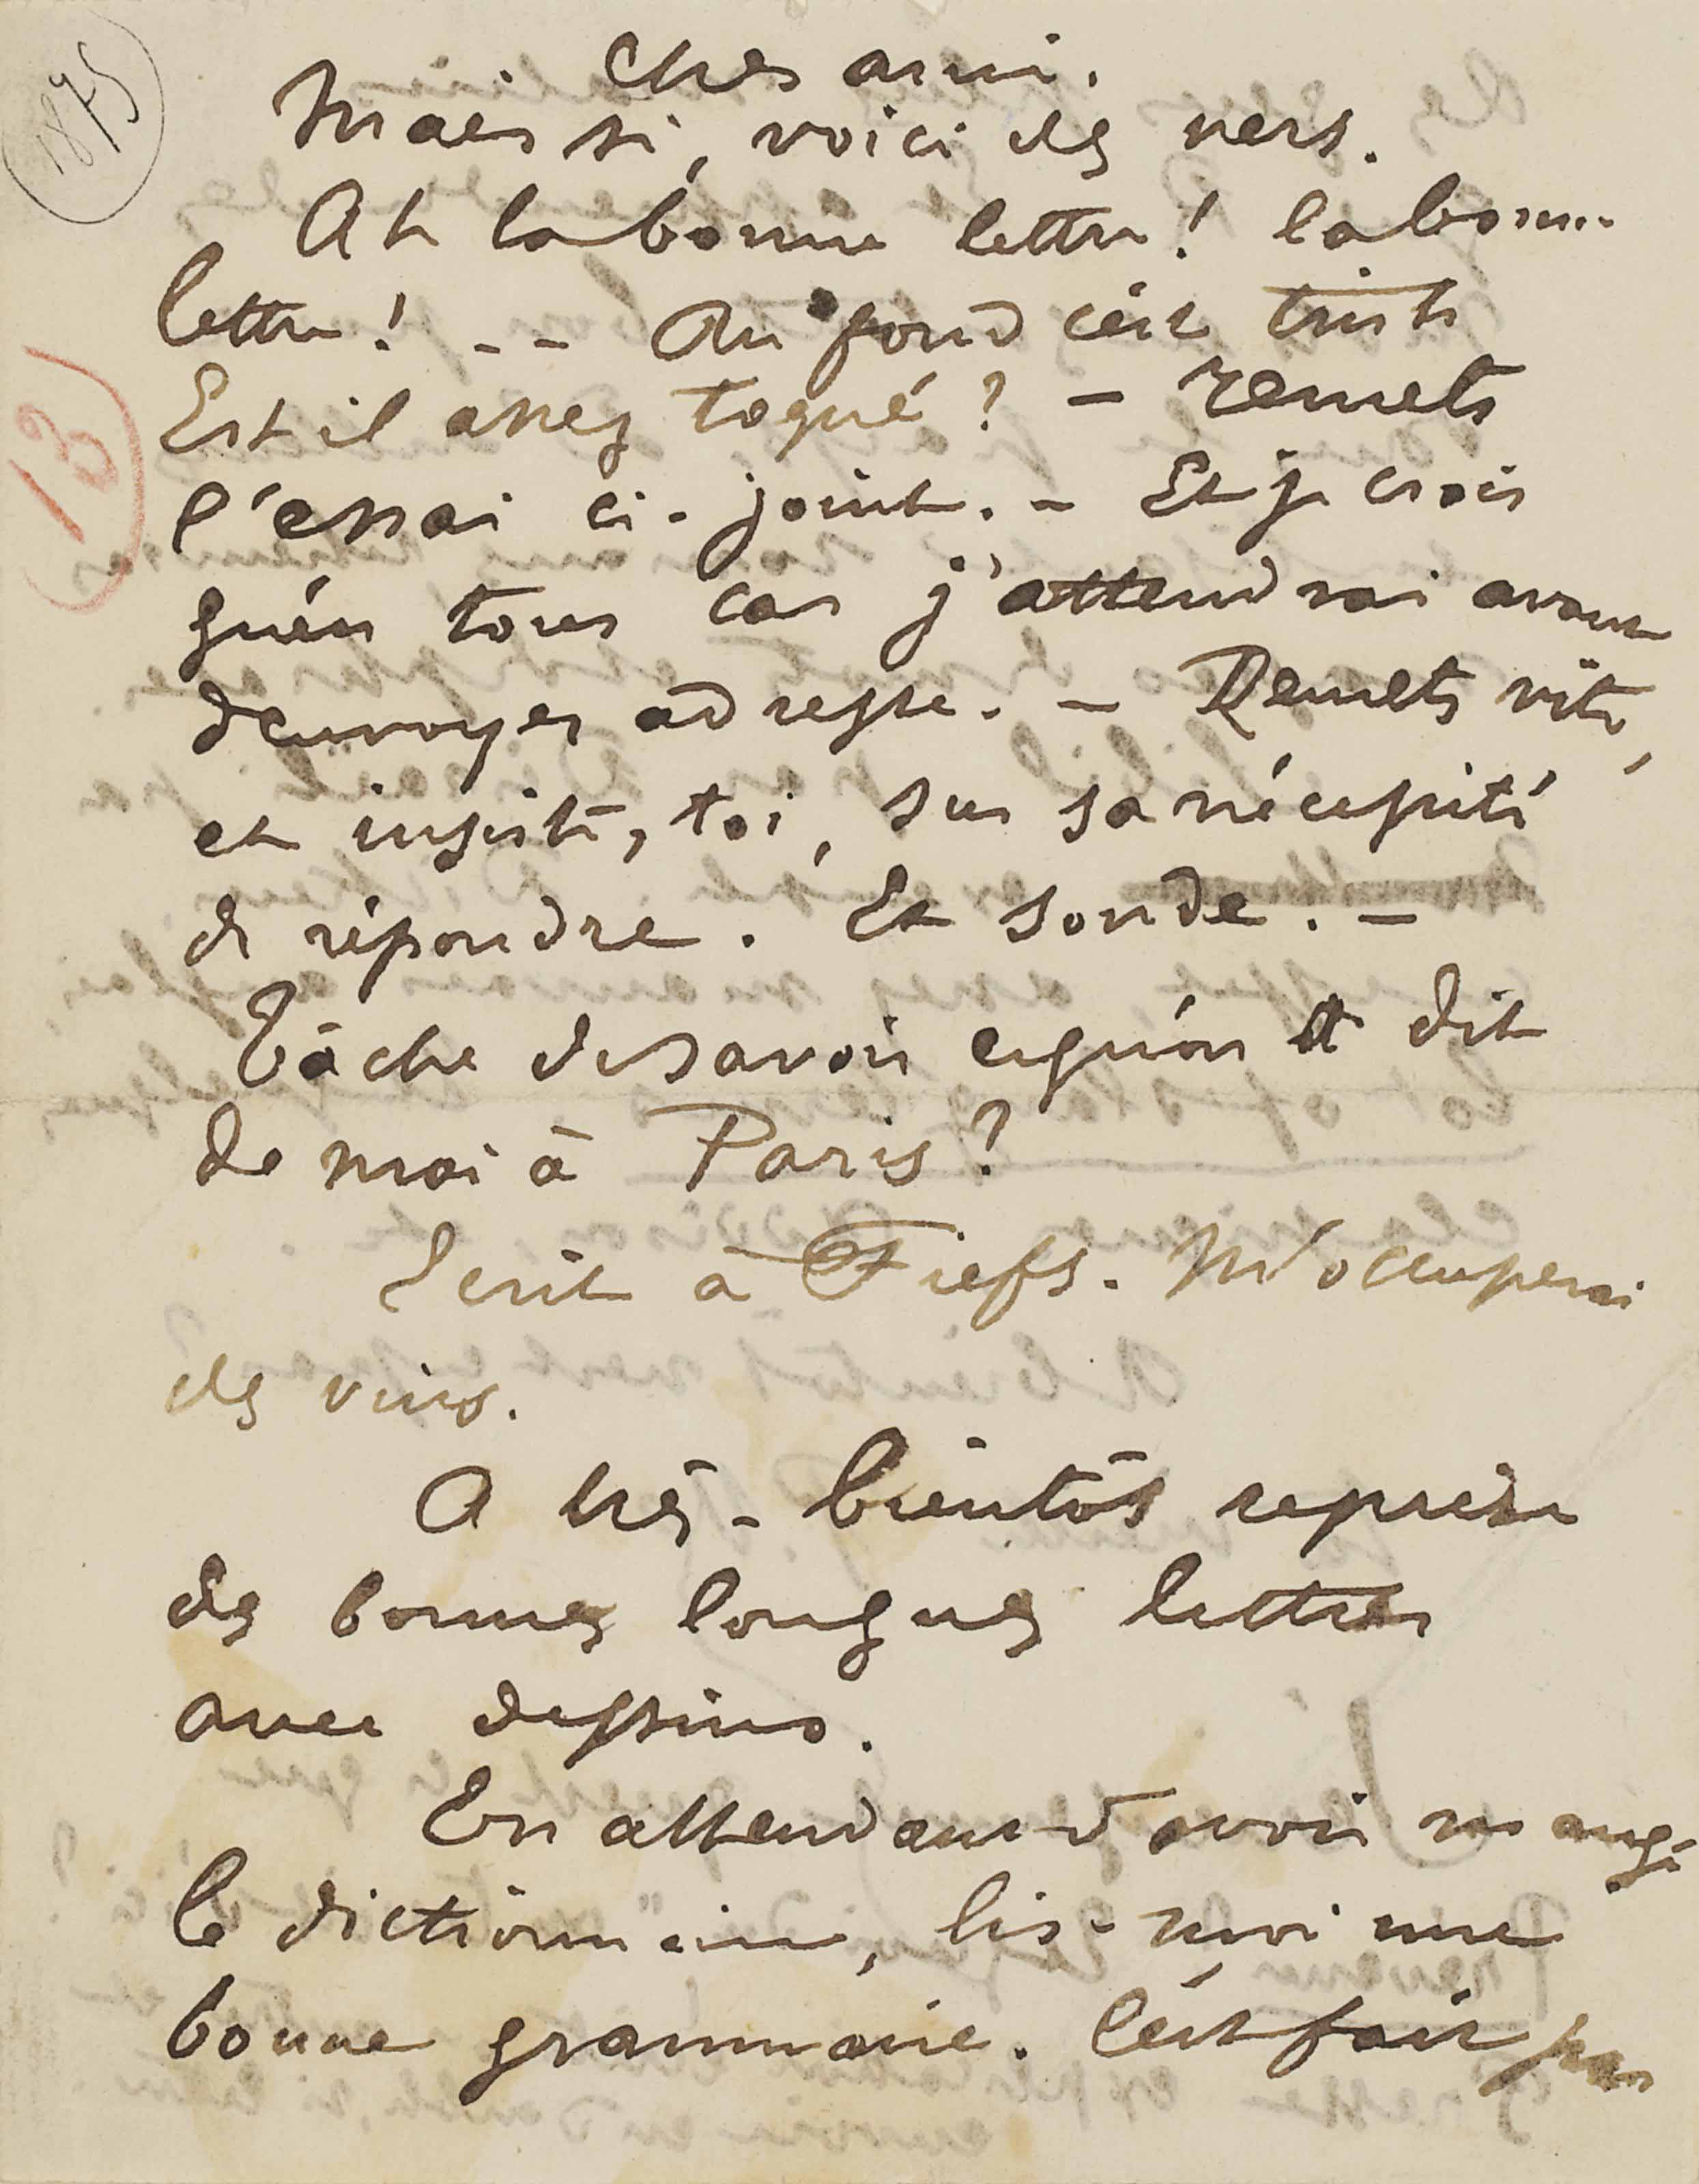 1875
Cher ami.
Mais si, voici des vers.
Ah la bonne lettre ! la bonne
lettre ! -- Au fond c'est triste
13
Est il assez toqué ? - remets
l'essai ci-joint. - Et je crois
qu'en tous cas j'attendrai avant
d'envoyer adresse. - Remets vite,
et insiste, toi, sur sa nécessité
de répondre. Et sonde. -
Tâche de savoir ce qu'on dit
de moi à Paris ?
Ecrit à Fiefs. M'occuperai
des vins.
A très-bientôt reprise
des bonnes longues lettres
avec dessins.
En attendant d'avoir mangé
le dictionnaire, lis-moi une
bonne grammaire. C'est fait pour